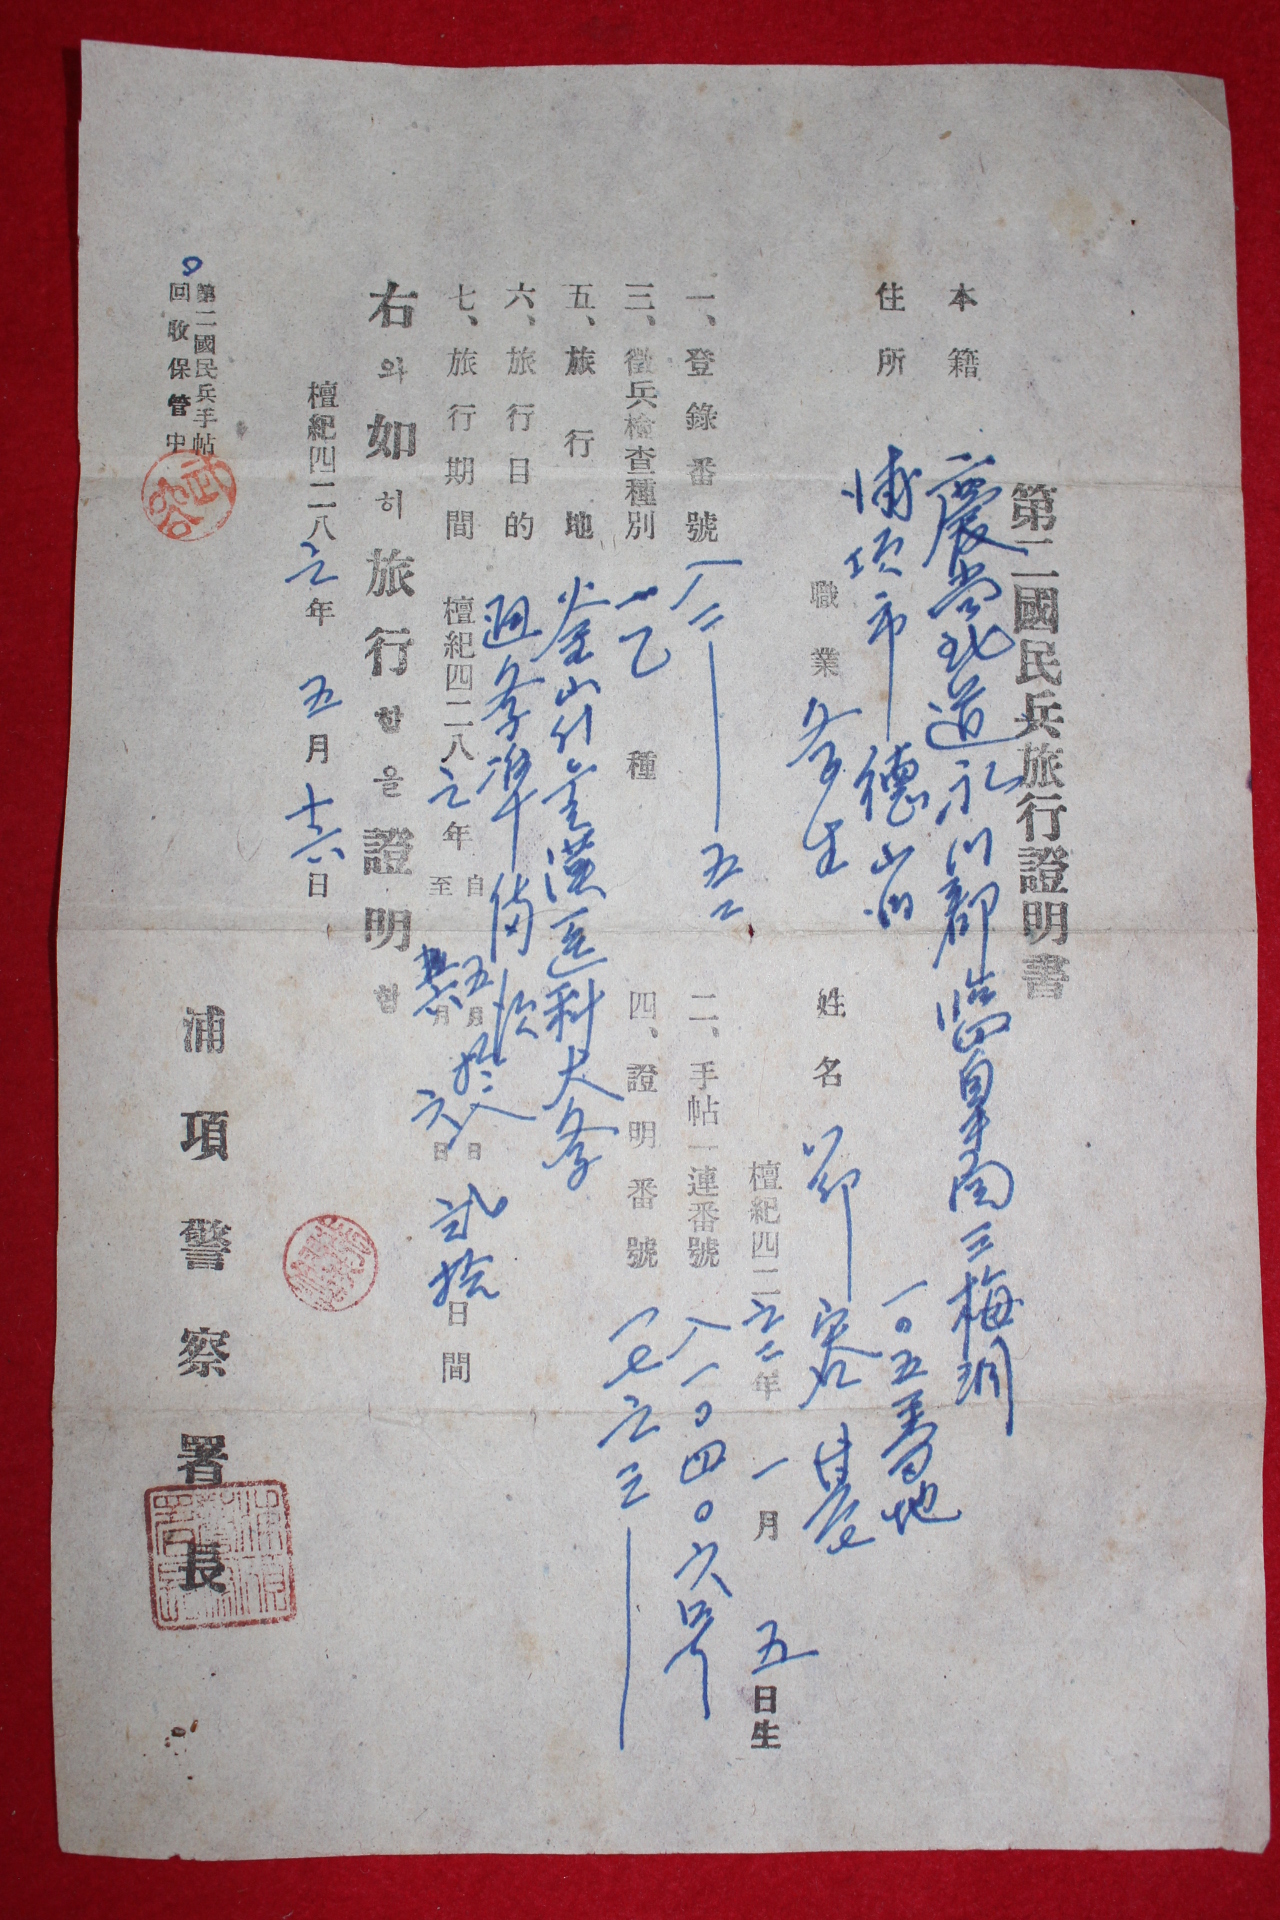 第二國民兵旅行證明書
本籍 慶尙北道永川郡臨皐面三梅洞
一〇五番地
住所 浦項市 德山洞
職業 學生 姓名 鄭容
檀紀四二六二年一月五日生
一、登錄番號 八二 五二
二、手帖一連番號 八一〇四〇六号
三、徵兵檢查種別 一乙種
四、證明番號 一七六三
五、旅行地 釜山市 漢医科大学
六、旅行目的 通学準備次
七、旅行期間 檀紀四二八八年 自五月拾八日
至六月六日 貳拾日間
右와如히旅行함을證明함
檀紀四二八八年五月十六日
浦項警察署長
第二國民兵手帖
回收保管中